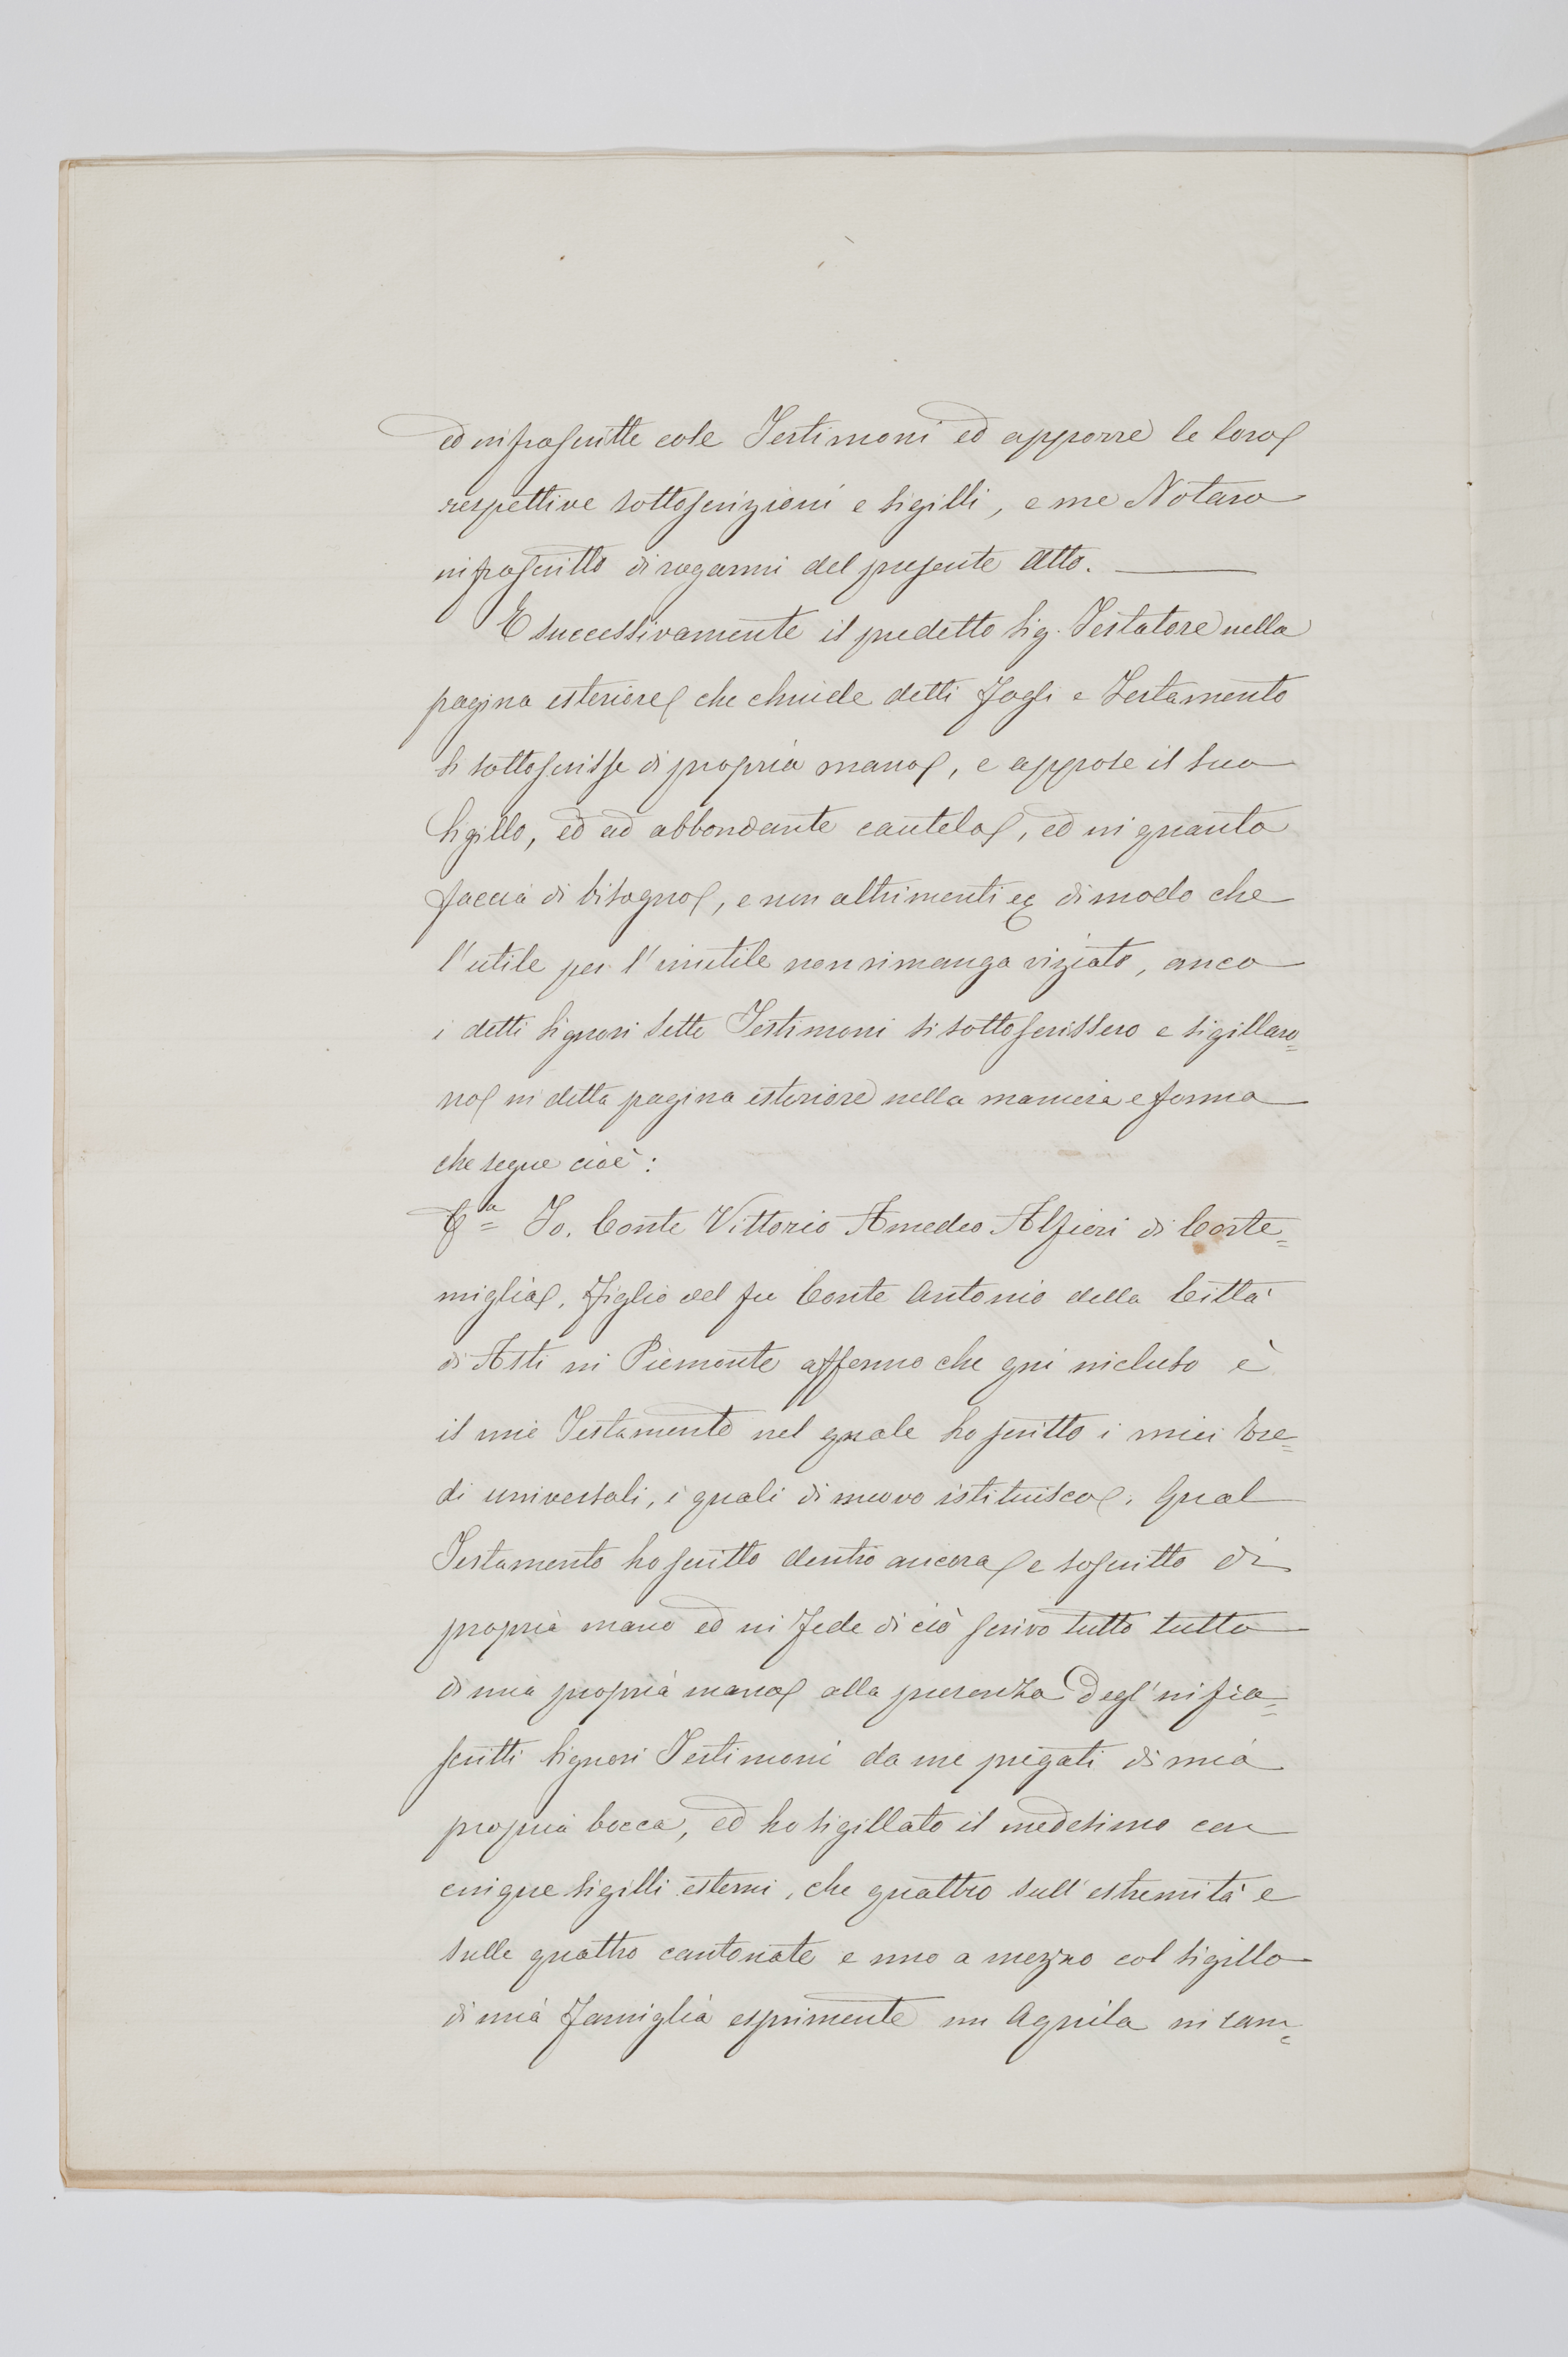 ed infrascritte cose Testimoni ed apporre le loro
respettive sottoscrizioni e sigilli, e me Notaro
infrascritto di rogarmi del presente Atto.
E successivamente il predetto Sig. Testatore nella
pagina esteriore che chiude detti Fogli e Testamento
si sottoscrisse di propria mano, e appose il suo
Sigillo, ed ad abbondante cautela, ed in quanto
faccia di bisogno, e non altrimenti &c dimodo che
l'utile per l'inutile non rimanga viziato, anco
i detti Signori Sette Testimoni si sottoscrissero e sigillaro=
no in detta pagina esteriore nella maniera e forma
che segue cioè:
Io. Conte Vittorio Amedeo Alfieri di Corte=
miglia, Figlio del fu Conte Antonio della Città
di Asti in Piemonte affermo che qui incluso è
il mio Testamento nel quale ho scritto i miei Ere=
di universali, i quali di nuovo istituisco. Qual
Testamento ho scritto dentro ancora e soscritto di
propria mano ed in Fede di ciò scrivo tutto tutto
di mia propria mano alla presenza degl'infra=
scritti Signori Testimoni da me pregati di mia
propria bocca, ed ho sigillato il medesimo con
cinque sigilli esterni, che quattro sull'estremità e
sulle quattro cantonate e uno a mezzo col sigillo
di mia Famiglia esprimente un Aquila in cam=